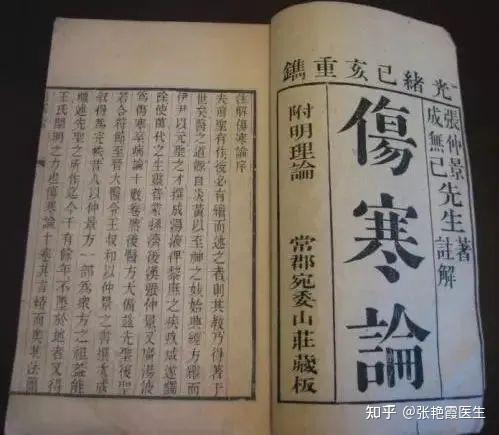 光緒己亥重鐫
張仲景先生著
成無己註解
傷寒論
附明理論
常郡宛委山莊藏板
註解傷寒論序
夫前聖有作後必有繼而述之者則其教乃得著于
世矣醫之道源自炎黃以至神之妙始興經方繼而
伊尹以元聖之才撰成湯液俾黎庶之疾疚咸遂蠲
除使萬代之生靈普蒙拯濟後漢張仲景又廣湯液
為傷寒卒病論十數卷然後醫方大備茲先聖後聖
若合符節至晉太醫令王叔和以仲景之書撰次成
敘得為完帙昔人以仲景方一部為衆方之祖蓋能
繼述先聖之所作迄今千有餘年不墜於地者又得
王氏闡明之力也傷寒論十卷其言精而奧其法簡
知乎 @张艳霞医生